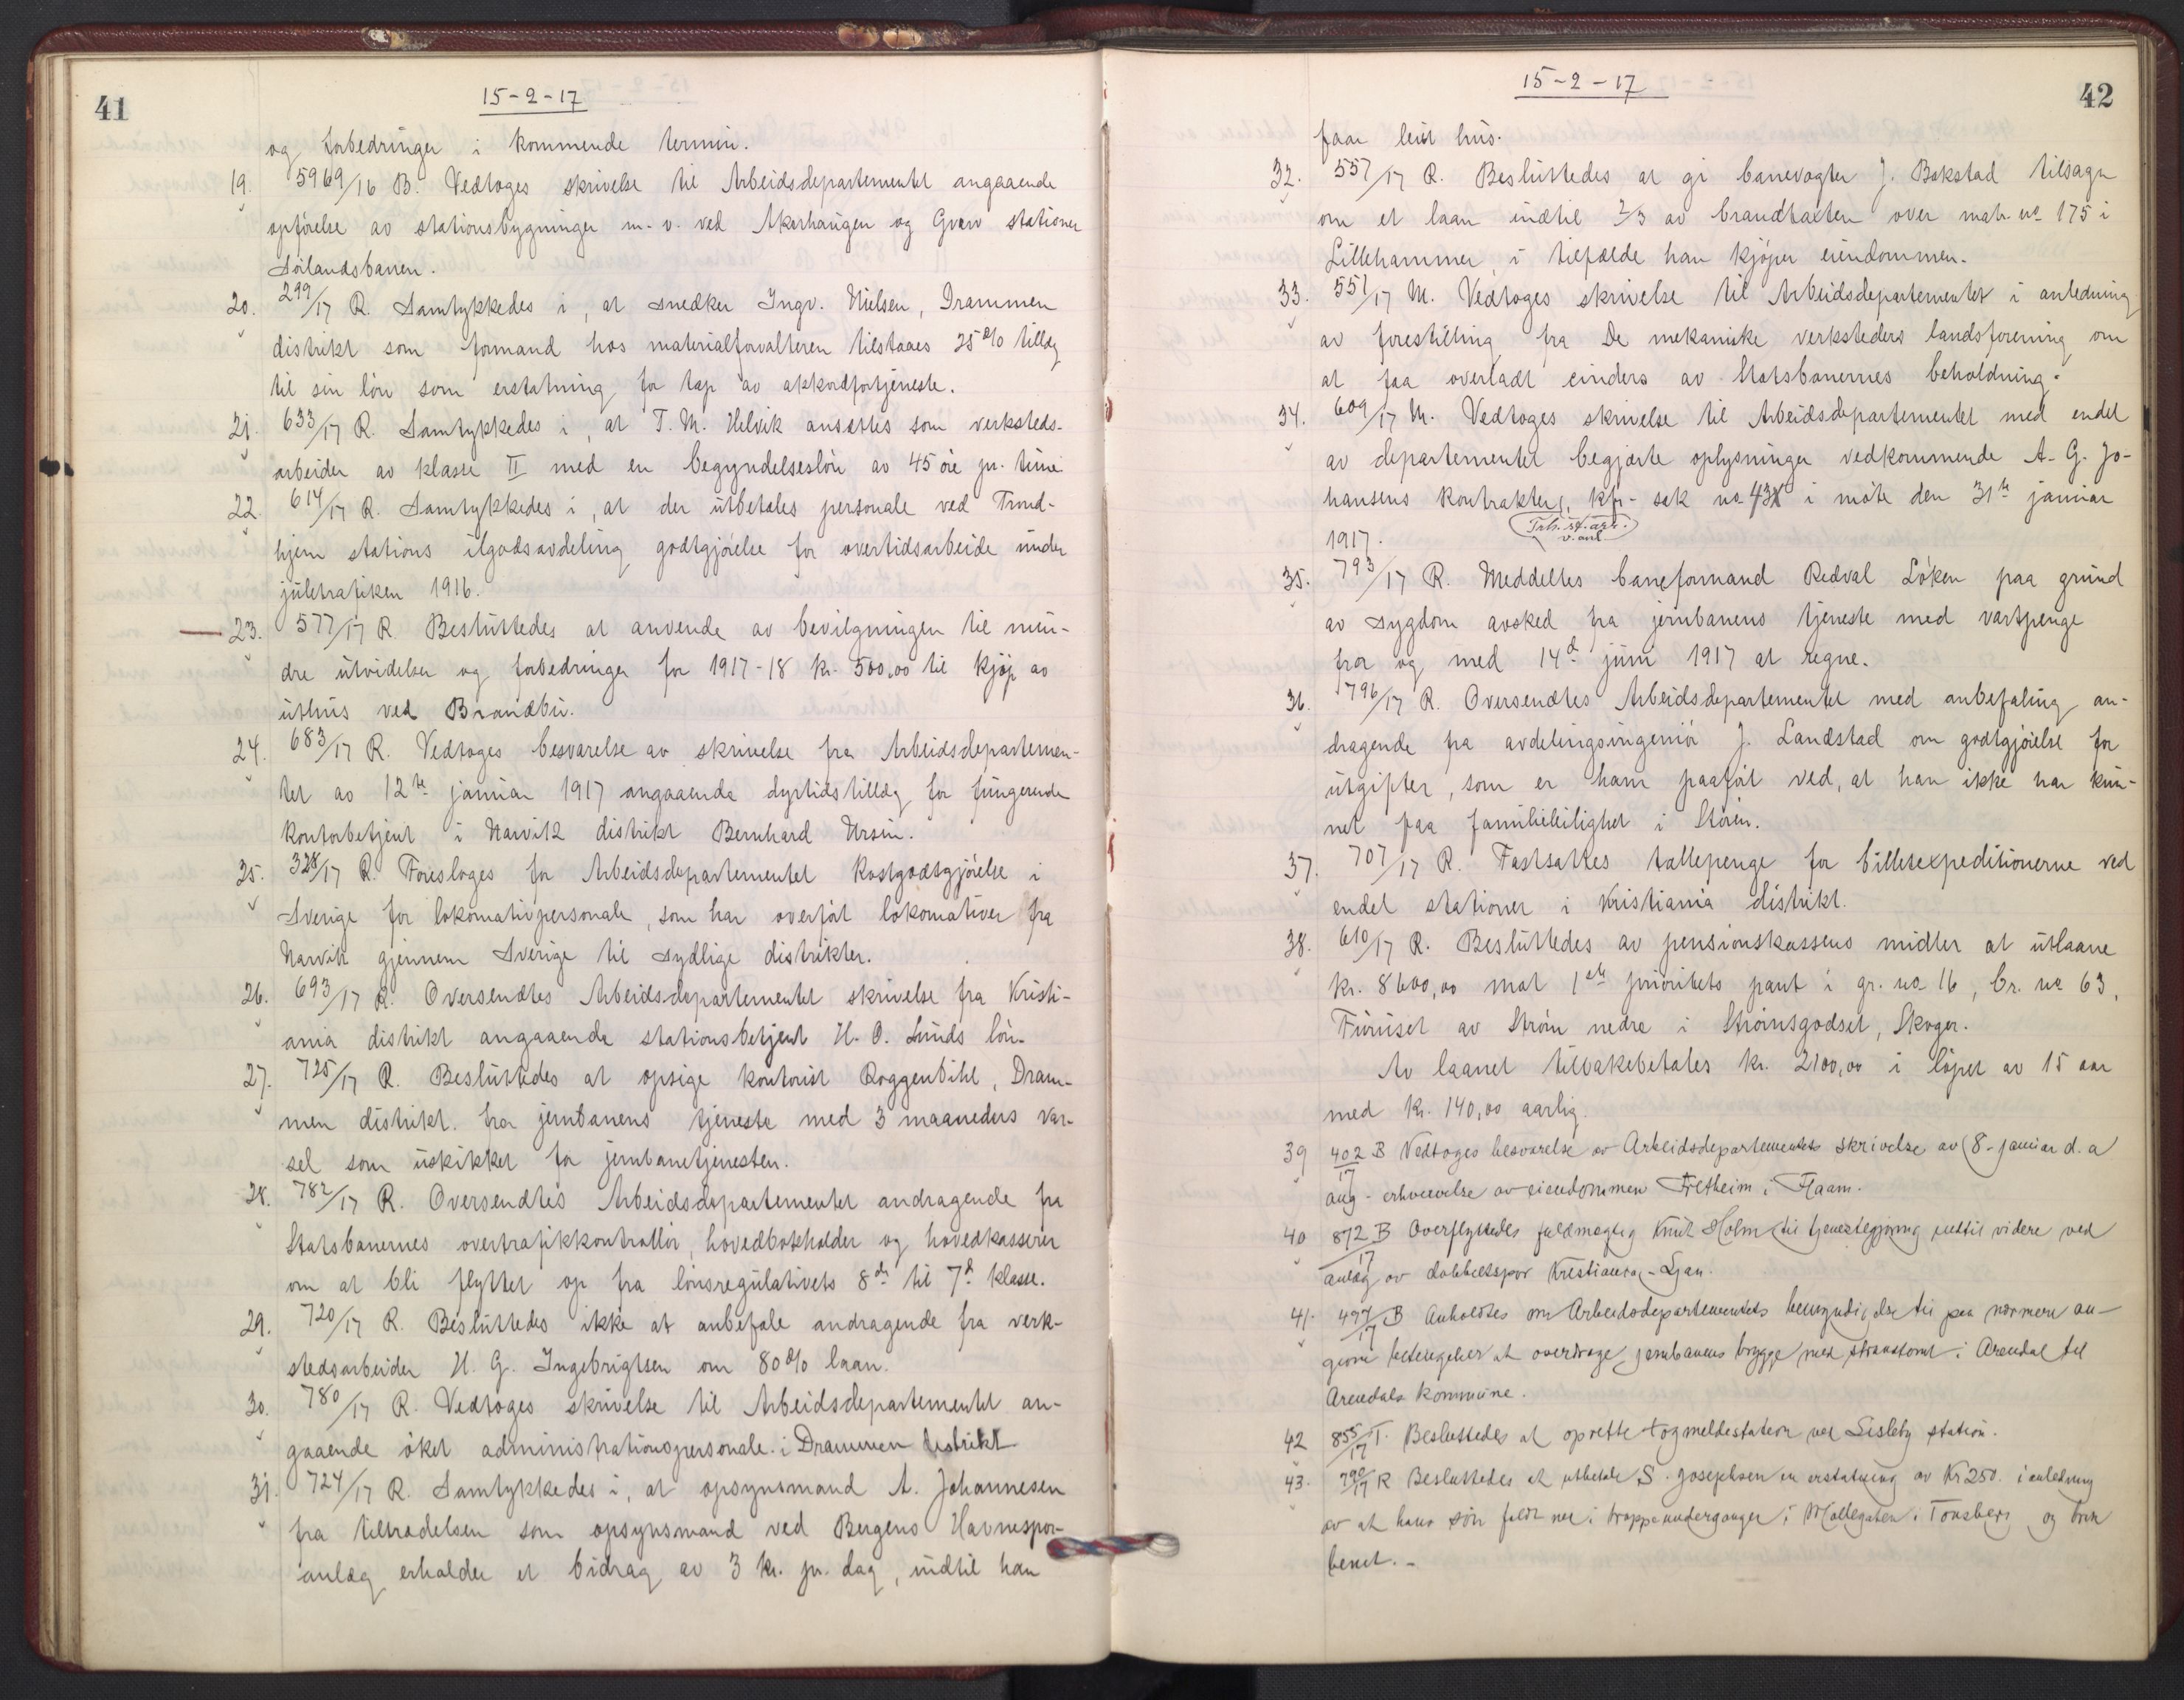 41
15-2-17
og forbedringer i kommende termin.
19. 5969/16 B. Vedtoges skrivelse til Arbeidsdepartementet angaaende
opførelse av stationsbygninger m.v. ved Akerhaugen og Gvarv stationer
Sørlandsbanen.
20. 299/17 R. Samtykkedes i, at snedker Ingv. Nielsen, Drammen
distrikt som formand hos materialforvalteren tilstaaes 25% tillæg
til sin løn som erstatning for tap av akkordfortjeneste.
21. 633/17 R. Samtykkedes i, at T. M. Helvik ansættes som verksteds-
arbeider av klasse II med en begyndelsesløn av 45 øre pr. time
22. 614/17 R. Samtykkedes i, at der utbetales personale ved Trond-
hjem stations ilgodsavdeling godtgjørelse for overtidsarbeide under
juletrafiken 1916.
23. 577/17 R. Besluttedes at anvende av bevilgningen til min-
dre utvidelser og forbedringer for 1917-18 kr. 500,00 til kjøp av
uthus ved Brandbu.
24. 683/17 R. Vedtoges besvarelse av skrivelse fra Arbeidsdepartemen-
tet av 12te januar 1917 angaaende dyrtidstillæg for fungerende
kontorbetjent i Narvik distrikt Bernhard Ursin.
25. 328/17 R. Foresloges for Arbeidsdepartementet kostgodtgjørelse i
Sverige for lokomotivpersonale, som har overført lokomotiver fra
Narvik gjennem Sverige til sydlige distrikter.
26. 693/17 R. Oversendtes Arbeidsdepartementet skrivelse fra Kristi-
ania distrikt angaaende stationsbetjent H. O. Lunds løn.
27. 725/17 R. Besluttedes at opsige kontorist Roggenbihl, Dram-
men distrikt. fra jernbanens tjeneste med 3 maaneders var-
sel som uskikket for jernbanetjenesten.
28. 782/17 R. Oversendtes Arbeidsdepartementet andragende fra
Statsbanernes overtrafikkontrollør, hovedbokholder og hovedkasserer
om at bli flyttet op fra lønsregulativets 8de til 7de klasse.
29. 720/17 R. Besluttedes ikke at anbefale andragende fra verk-
stedsarbeider H. G. Ingebrigtsen om 80% laan.
30. 780/17 R. Vedtoges skrivelse til Arbeidsdepartementet an-
gaaende øket administrationspersonale i Drammen distrikt
31. 724/17 R. Samtykkedes i, at opsynsmand A. Johannesen
fra tiltrædelsen som opsynsmand ved Bergens Havnespor-
anlæg erholder et bidrag av 3 kr. pr. dag, indtil han
42
15-2-17
faar leiet hus.
32. 557/17 R. Besluttedes at gi banevogter J. Bakstad tilsagn
om et laan indtil 2/3 av brandtaxten over matr. no 175 i
Lillehammer, i tilfælde han kjøper eiendommen.
33. 551/17 M. Vedtoges skrivelse til Arbeidsdepartementet i anledning
av forestilling fra De mekaniske verksteders landsforening om
at faa overladt cinders av Statsbanernes beholdning.
34. 609/17 M. Vedtoges skrivelse til Arbeidsdepartementet med endel
av departementet begjærte oplysninger vedkommende A. G. Jo-
hansens kontrakter, kfr. sak no 43 i møte den 31te januar
1917.
35. 793/17 R. Meddeltes baneformand Redval Løken paa grund
av sygdom avsked fra jernbanens tjeneste med vartpenge
fra og med 14de juni 1917 at regne.
36. 796/17 R. Oversendtes Arbeidsdepartementet med anbefaling an-
dragende fra avdelingsingeniør J. Landstad om godtgjørelse for
utgifter, som er ham paaført ved, at han ikke har kun-
net faa familieleilighet i Støren.
37. 707/17 R. Fastsattes tællepenge for billetexpeditionerne ved
endel stationer i Kristiania distrikt.
38. 610/17 R. Besluttedes av pensionskassens midler at utlaane
kr. 8600,00 mot 1ste prioritets pant i gr. no 16, br. no 63,
Furuset av Strøm nedre i Strømsgodset, Skoger.
Av laanet tilbakebetales kr. 2100,00 i løpet av 15 aar
med kr. 140,00 aarlig.
39 402/17 B Vedtoges besvarelse av Arbeidsdepartementets skrivelse av 8. januar d.a
ang. erhvervelse av eiendommen Fretheim i Flaam.
40 872/17 B Overflyttedes fuldmægtig Knut Holm til tjenestegjøring indtil videre ved
anlæg av dobbeltspor Kristiania-Ljan.
41. 497/17 B Anholdtes om Arbeidsdepartementets bemyndigelse til paa nærmere an-
givne betingelser at overdrage jernbanens brygge med strandtomt i Arendal til
Arendals kommune.
42 855/17 T. Besluttedes at oprette togmeldestation ved Lisleby station.
43. 790/17 R Besluttedes at utbetale S. Josephsen en erstatning av Kr 250. i anledning
av at hans søn faldt ned i trappenedergangen i Møllegaten i Tønsberg og brak
benet.-